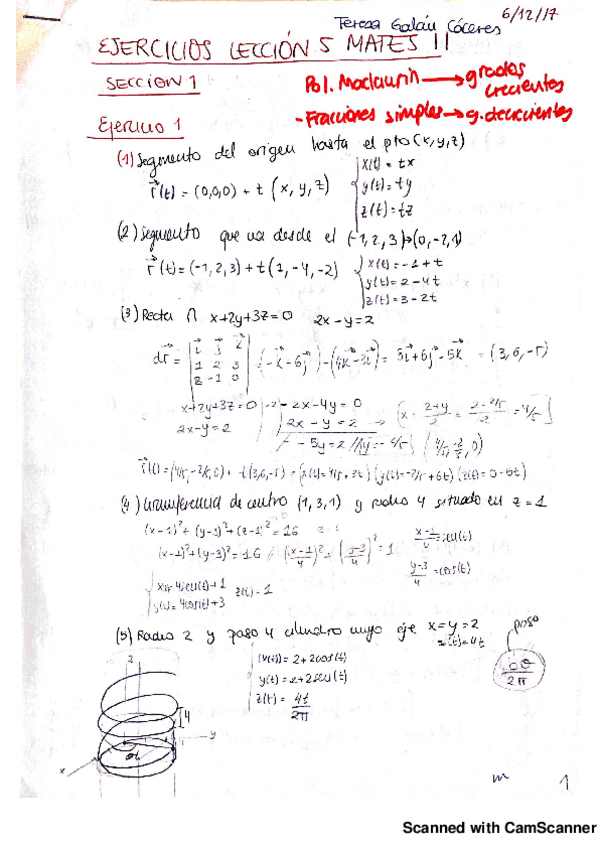 6/12/17
Teresa Galán Cáceres
EJERCICIOS LECCIÓN 5 MATES II
SECCION 1
Pol. Maclaurin → grados crecientes
- Fracciones simples → g. decrecientes
Ejercicio 1
(1) Segmento del origen hasta el pto (x, y, z)
r(t) = (0,0,0) + t (x, y, z)
x(t) = tx
y(t) = ty
z(t) = tz
(2) Segmento que va desde el (-1, 2, 3) → (0, -2, 1)
r(t) = (-1, 2, 3) + t (1, -4, -2)
x(t) = -1 + t
y(t) = 2 - 4t
z(t) = 3 - 2t
(3) Recta ∩ x+2y+3z=0 2x-y=2
dr = | i j k | 1 2 3 | 2 -1 0 | = (-k-6j) - (4k-3i) = 3i+6j-5k = (3, 6, -5)
x+2y+3z=0 | -2 | -2x-4y=0
2x-y=2 | 2x-y=2 →
-5y=2 // y=-2/5
(4) Circunferencia de centro (1, 3, 1) y radio 4 situado en z=1
(x-1)²+(y-3)²=16
y-3/4 = cos(t)
x(t) = 4sen(t)+1
y(t) = 4cos(t)+3
z(t) = 1
(5) Radio 2 y paso 4 cilindro cuyo eje x=y=2
z(t)=4t
paso
2π
x(t) = 2+2cos(t)
y(t) = 2+2sen(t)
z(t) = 4t/2π
z
4
y
x
m
1
Scanned with CamScanner